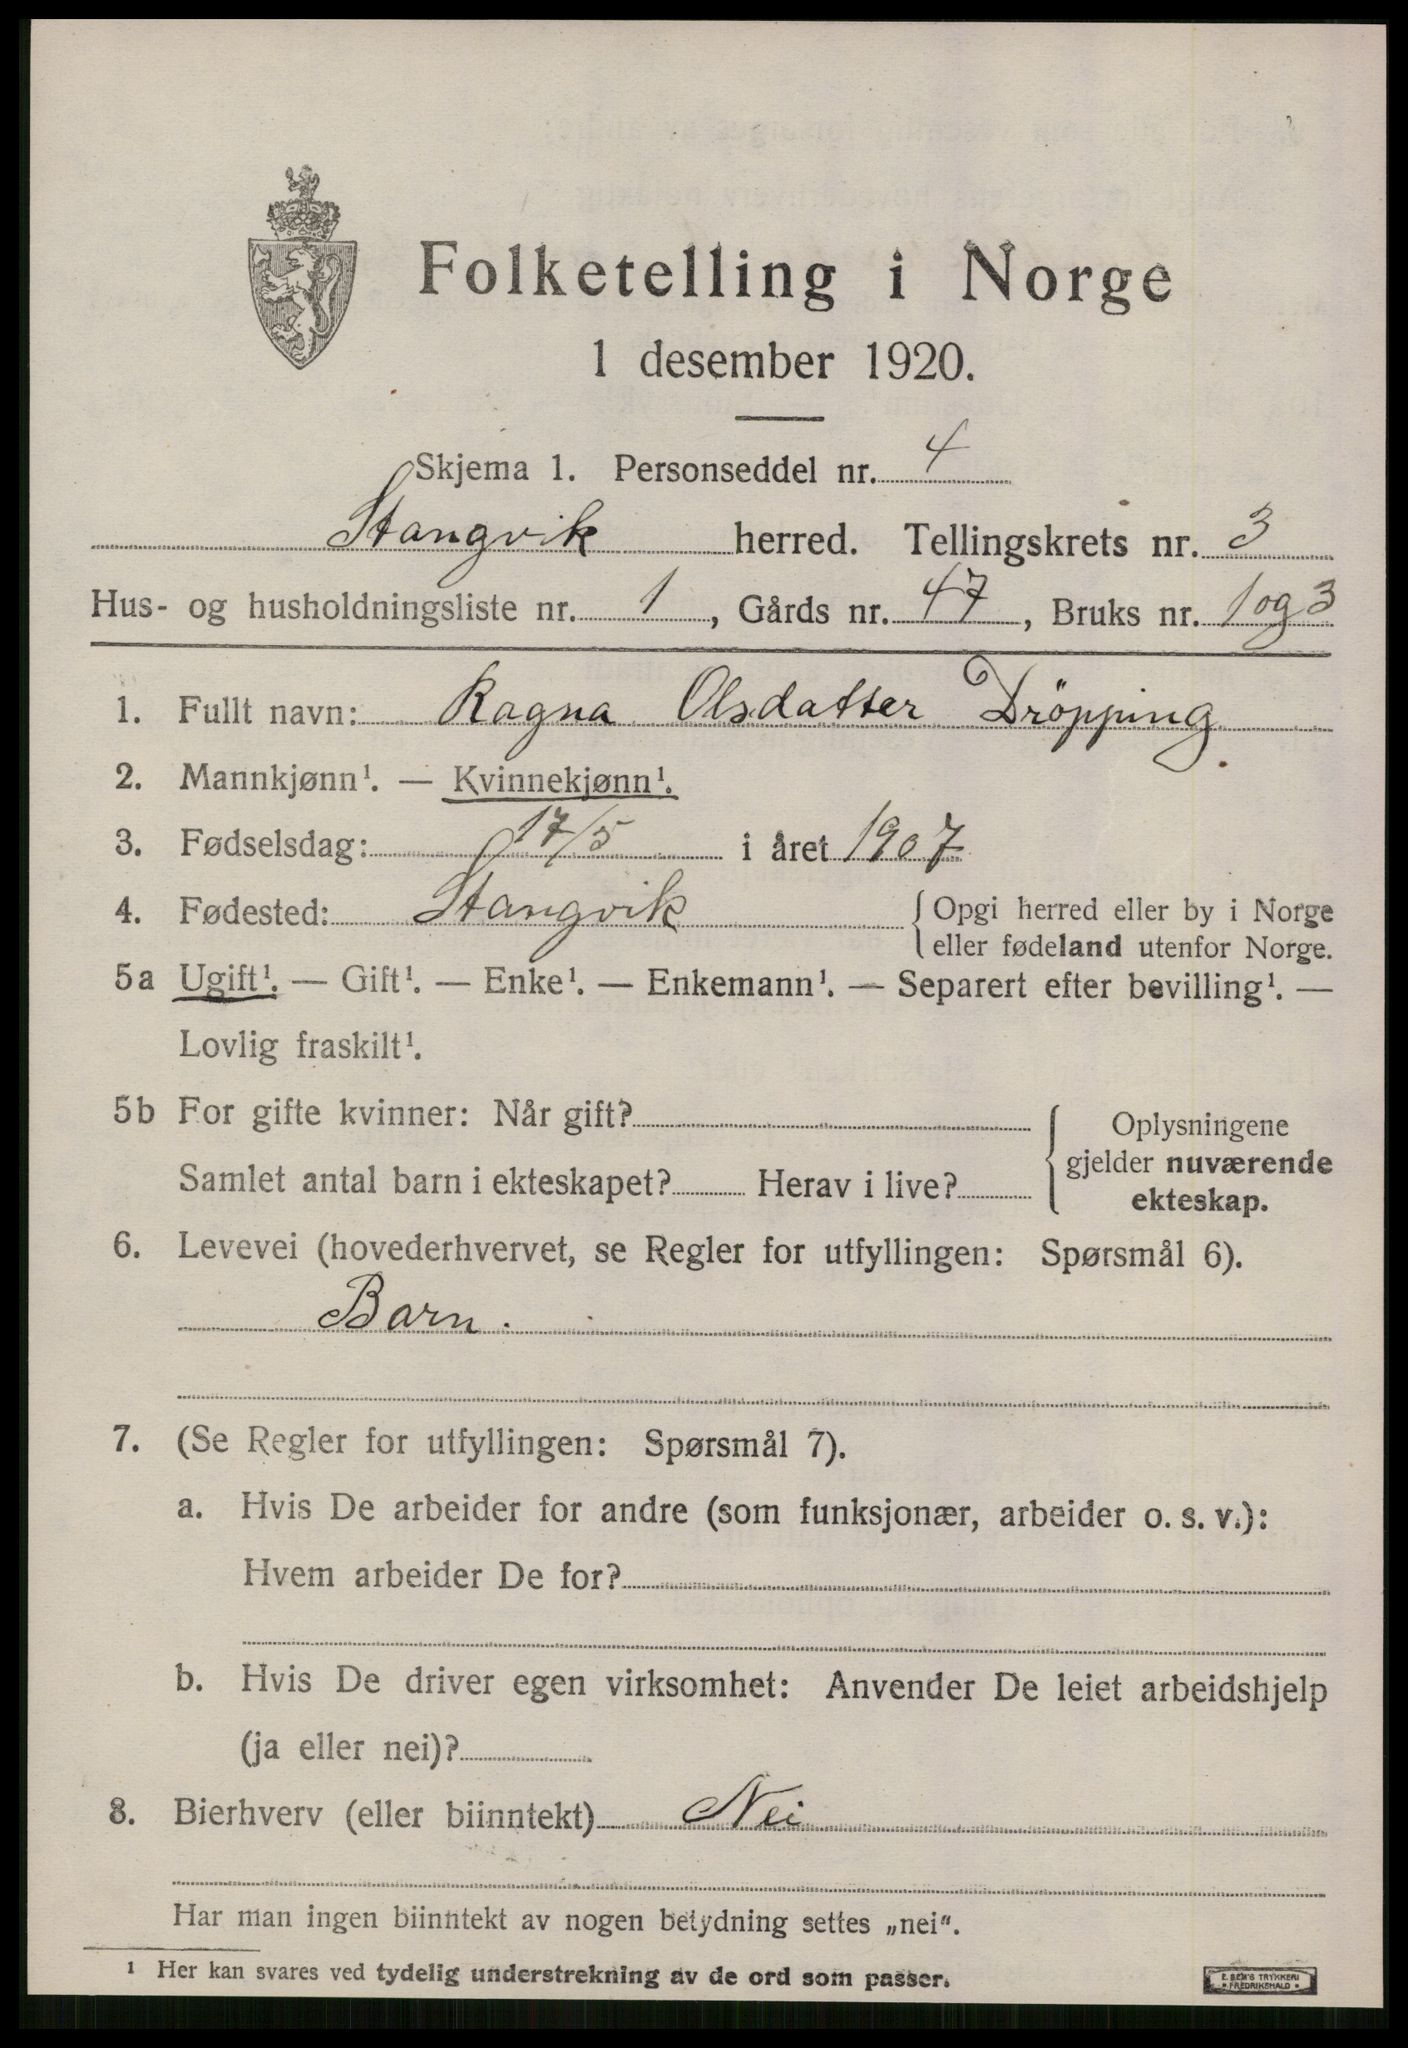 Folketelling i Norge
1 desember 1920.
Skjema 1. Personseddel nr. 4
Stangvik herred. Tellingskrets nr. 3
Hus- og husholdningsliste nr. 1, Gårds nr. 47, Bruks nr. 1 og 3
1. Fullt navn: Ragna Olsdatter Dröpping.
2. Mannkjønn¹. — Kvinnekjønn¹.
3. Fødselsdag: 17/5 i året 1907
4. Fødested: Stangvik { Opgi herred eller by i Norge
eller fødeland utenfor Norge.
5a Ugift¹. — Gift¹. — Enke¹. — Enkemann¹. — Separert efter bevilling¹. —
Lovlig fraskilt¹.
5b For gifte kvinner: Når gift? { Oplysningene
Samlet antal barn i ekteskapet? Herav i live? gjelder nuværende
ekteskap.
6. Levevei (hovederhvervet, se Regler for utfyllingen: Spørsmål 6).
Barn.
7. (Se Regler for utfyllingen: Spørsmål 7).
a. Hvis De arbeider for andre (som funksjonær, arbeider o. s. v.):
Hvem arbeider De for?
b. Hvis De driver egen virksomhet: Anvender De leiet arbeidshjelp
(ja eller nei)?
8. Bierhverv (eller biinntekt) Nei
Har man ingen biinntekt av nogen betydning settes „nei“.
¹ Her kan svares ved tydelig understrekning av de ord som passer.
E. SEM'S TRYKKERI
• FREDRIKSHALD •